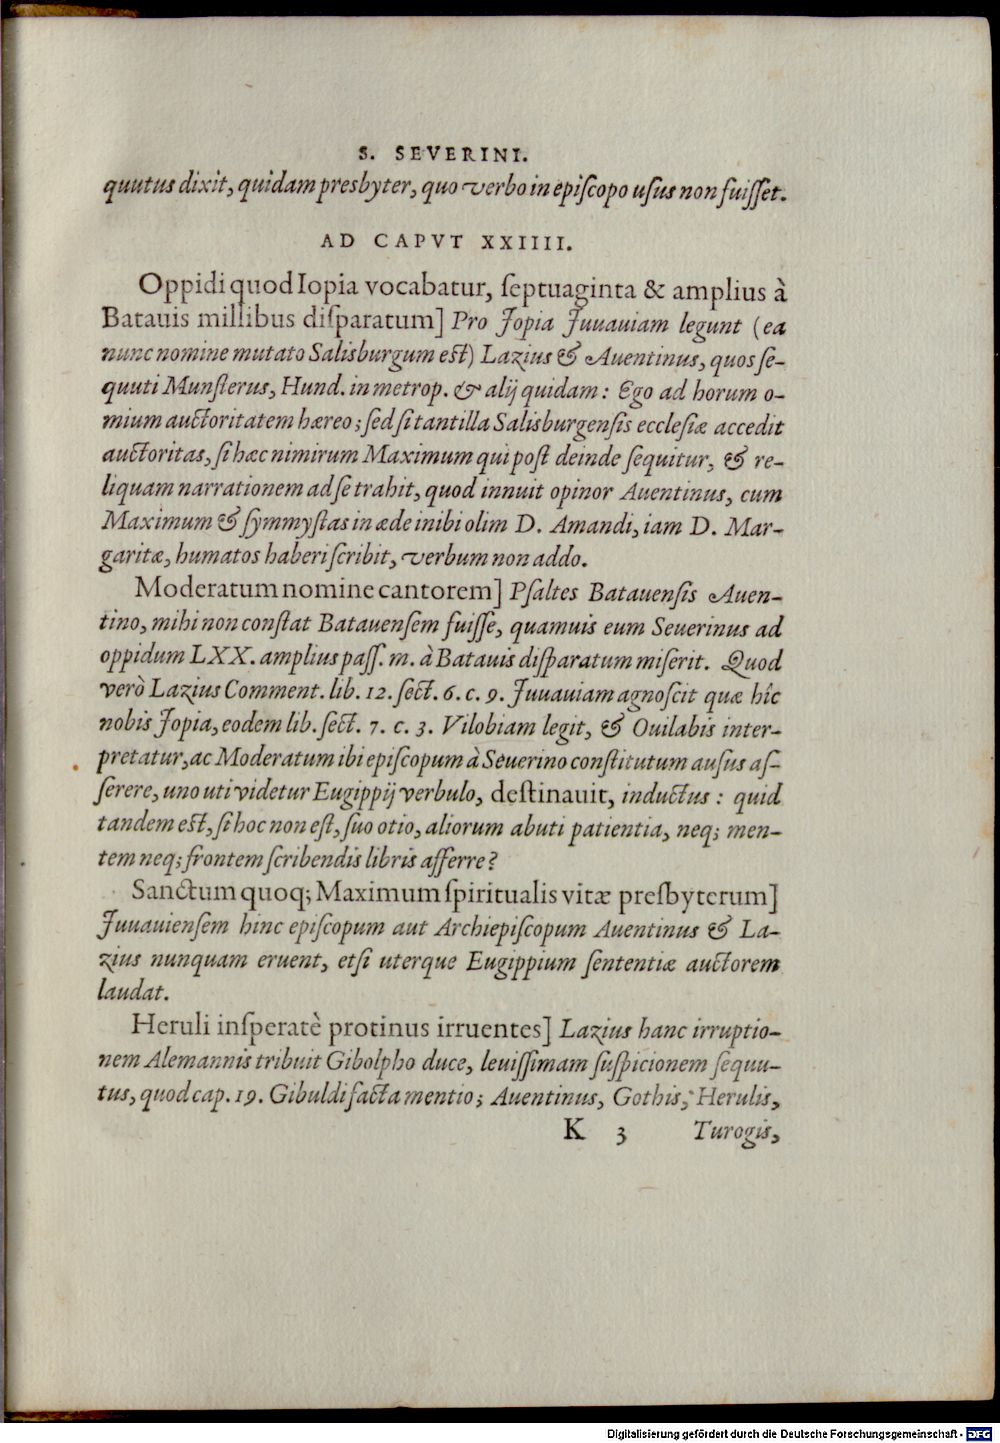 S. SEVERINI.
quutus dixit, quidam presbyter, quo verbo in episcopo usus non fuisset.
AD CAPVT XXIIII.
Oppidi quod Iopia vocabatur, ſeptuaginta & amplius à
Batauis millibus diſparatum] Pro Jopia Juuauiam legunt (ea
nunc nomine mutato Salisburgum est) Lazius & Auentinus, quos ſe-
quuti Munſterus, Hund. in metrop. & alij quidam: Ego ad horum o-
mium auctoritatem hæreo; ſed ſi tantilla Salisburgenſis eccleſiæ accedit
auctoritas, ſi hæc nimirum Maximum qui poſt deinde ſequitur, & re-
liquam narrationem ad ſe trahit, quod innuit opinor Auentinus, cum
Maximum & ſymmyſtas in æde inibi olim D. Amandi, iam D. Mar-
garitæ, humatos haberi ſcribit, verbum non addo.
Moderatum nomine cantorem] Pſaltes Batauenſis Auen-
tino, mihi non conſtat Batauenſem fuiſſe, quamuis eum Seuerinus ad
oppidum LXX. amplius paſſ. m. à Batauis diſparatum miſerit. Quod
verò Lazius Comment. lib. 12. ſect. 6. c. 9. Juuauiam agnoſcit quæ hîc
nobis Jopia, eodem lib. ſect. 7. c. 3. Vilobiam legit, & Ouilabis inter-
pretatur, ac Moderatum ibi epiſcopum à Seuerino conſtitutum auſus aſ-
ſerere, uno uti videtur Eugippij verbulo, deſtinauit, inductus: quid
tandem est, ſi hoc non eſt, ſuo otio, aliorum abuti patientia, neq; men-
tem neq; frontem ſcribendis libris afferre?
Sanctum quoq; Maximum ſpiritualis vitæ preſbyterum]
Juuauienſem hinc epiſcopum aut Archiepiſcopum Auentinus & La-
zius nunquam eruent, etſi uterque Eugippium ſententiæ auctorem
laudat.
Heruli inſperatè protinus irruentes] Lazius hanc irruptio-
nem Alemannis tribuit Gibolpho duce, leuiſſimam ſuſpicionem ſequu-
tus, quod cap. 19. Gibuldi facta mentio; Auentinus, Gothis, Herulis,
K 3 Turogis,
Digitalisierung gefördert durch die Deutsche Forschungsgemeinschaft - DFG